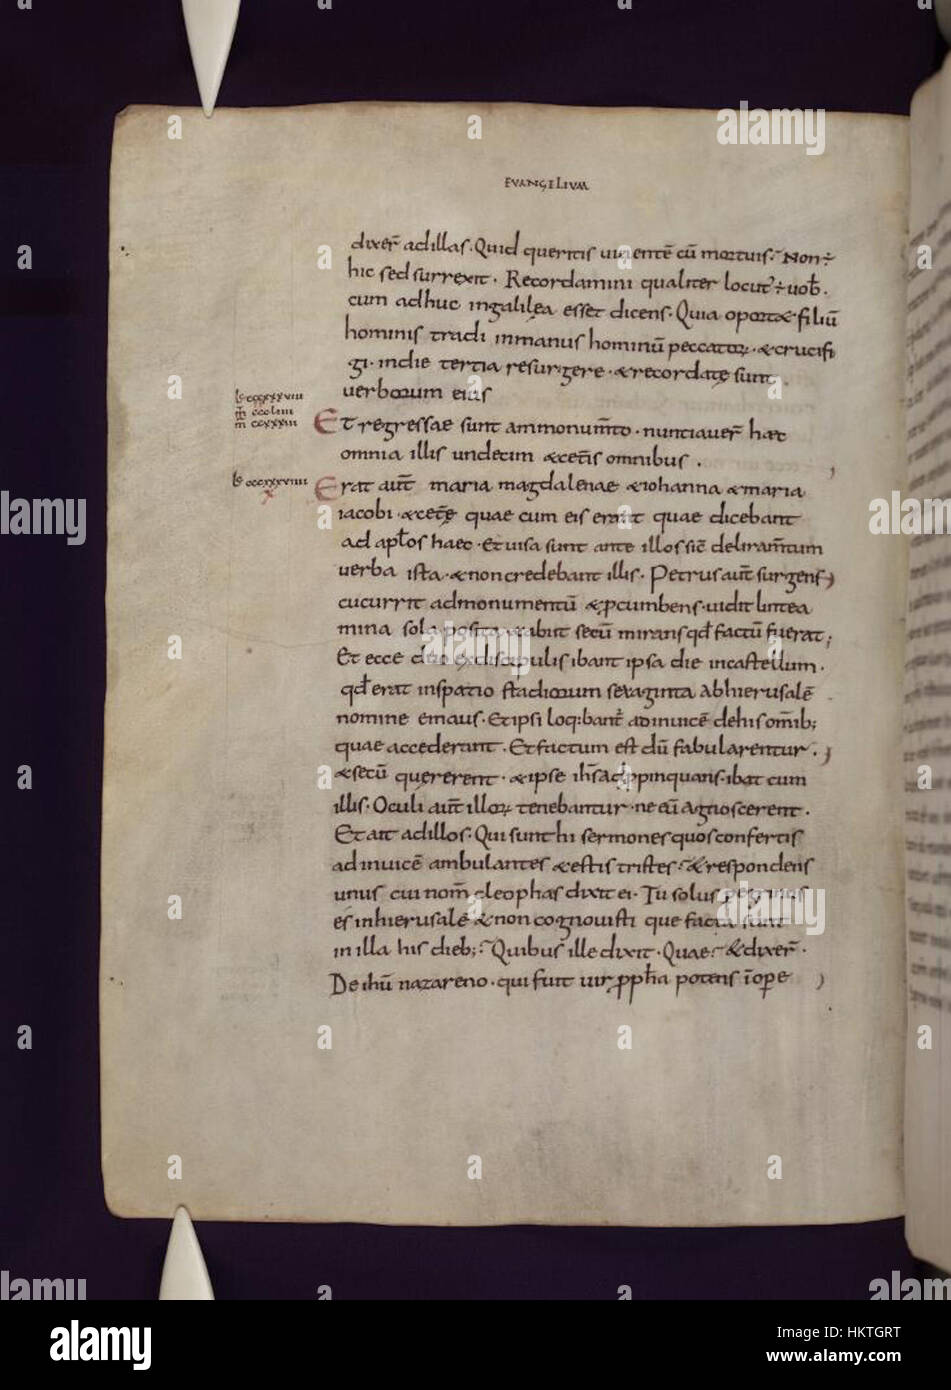 EVANGELIUM
dixer̄ ad illas. Quid queritis viventē cū mortuis; Non ÷
hic sed surrexit. Recordamini qualiter locut' ÷ vob̄.
cum adhuc in galilea esset dicens. Quia oportet filiū
hominis tradi in manus hominū peccatoꝝ. & crucifi
gi. in die tertia resurgere. & recordatę sunt
verborum eius
Lc cccxxxviii
m̄ cccliii
m̄ ccxxxiii
Et regressae sunt a monum̄to. nunciaver̄ haec
omnia illis undecim & cet̄is omnibus.
Lc cccxxxviiii
Erat aut̄ maria magdalenae & iohanna & maria
iacobi. & cet̄ę quae cum eis erant quae dicebant
ad apl̄os haec. Et visa sunt ante illos sic̄ deliram̄tum
verba ista. & non credebant illis. Petrus aut̄ surgens
cucurrit ad monumentū & ꝓcumbens. vidit lintea
mina sola posita & abiit secū mirans qđ factū fuerat;
Et ecce duo ex discipulis ibant ipsa die in castellum.
qđ erat in spatio stadiorum sexaginta ab hierusalē
nomine emaus. Et ipsi loq:bant' ad invicē de his om̄ib;
quae accederant. Et factum est dū fabularentur.
& secū quererent. & ipse ih̄s adꝓpinquans. ibat cum
illis. Oculi aut̄ illoꝝ tenebantur. ne eū agnoscerent.
Et ait ad illos. Qui sunt hi sermones quos confertis
ad invicē ambulantes & estis tristes; & respondens
unus cui nom̄ cleophas dixit ei. Tu solus peregrinus
es in hierusalē & non cognovisti que facta sunt
in illa his dieb;; Quibus ille dixit. Quae; & dixer̄.
De ih̄u nazareno. qui fuit vir ꝓph̄a potens ī opere
alamy
Image ID: HKTGRT
www.alamy.com